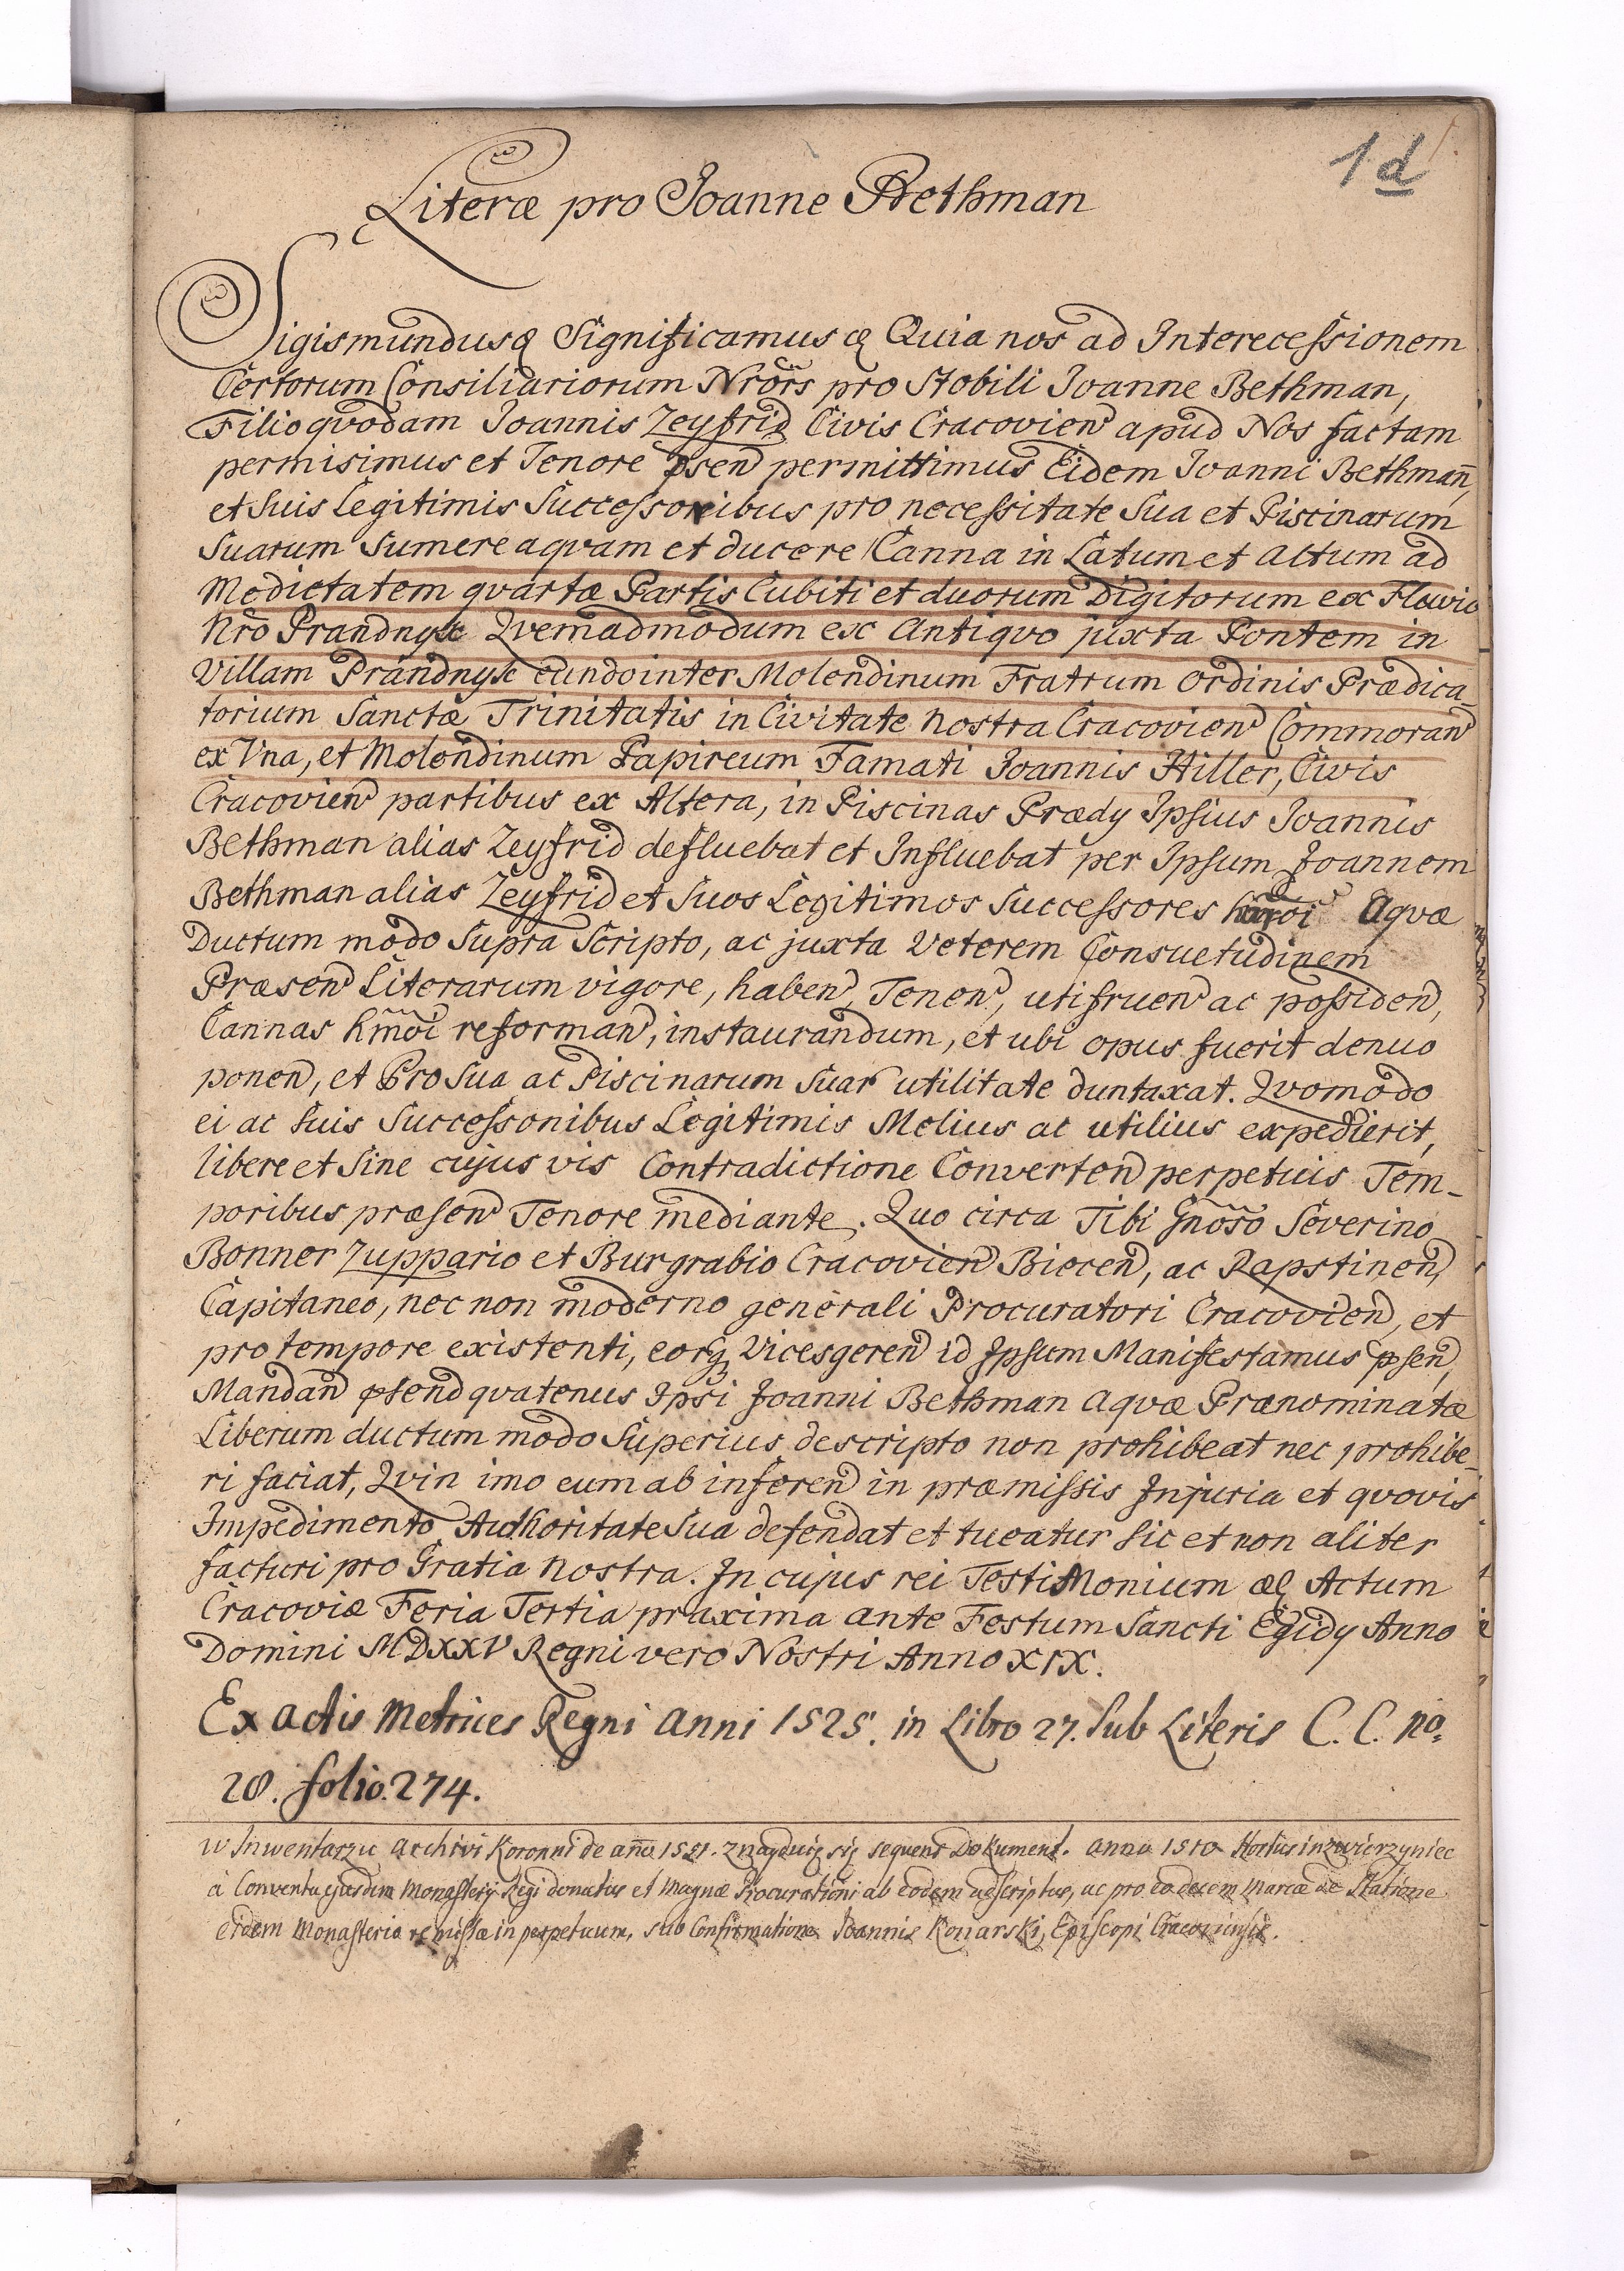 1 d
Literæ pro Joanne Bethman
Sigismundus Significamus Quia nos ad Interecessionem
Certorum Consiliariorum Nrõrs pro Nobili Joanne Bethman,
Filio qvodam Joannis Zeyfrid Civis Cracovien apud Nos factam
permisimus et Tenore psen permittimus Eidem Joanni Bethmañ,
et Suis Legitimis Successoribus pro necessitate Sua et Piscinarum
Suarum Sumere aqvam et ducere Canna in Latum et altum ad
Medietatem qvartæ Partis Cubiti et duorum Digitorum ex Fluvio
Nrõ Prandnyk Qvemadmodum ex Antiqvo juxta Pontem in
Villam Prandnyk eundo inter Molendinum Fratrum Ordinis Prædica
torium Sanctæ Trinitatis in Civitate Nostra Cracovien Commoran
ex Una, et Molendinum Papireum Famati Joannis Hiller, Civis
Cracovien partibus ex Altera, in Piscinas Prædy Ipsius Joannis
Bethman alias Zeyfrid defluebat et Influebat per Ipsum Joannem
Bethman alias Zeyfrid et Suos Legitimos Successores Aqvæ
Ductum modo Supra Scripto, ac juxta Veterem Consuetudinem
Præsen Literarum vigore, haben, Tenen, utifruen ac possiden,
Cannas hmõi reforman, instaurandum, et ubi opus fuerit denuo
ponen, et Pro Sua ac Piscinarum Suar utilitate duntaxat. Qvomodo
ei ac Suis Successonibus Legitimis Melius ac utilius expedierit,
libere et Sine cujus vis Contradictione Converten perpetuis Tem-
poribus præsen Tenore mediante. Quo circa Tibi Gnõso Severino
Bonner Zuppario et Burgrabio Cracovien Biecen, ac Rapstinen,
Capitaneo, nec non moderno generali Procuratori Cracovien, et
pro tempore existenti, eorq Vicesgeren id Ipsum Manifestamus psen,
Mandan psend qvatenus Ipsi Joanni Bethman Aqvæ Prænominatæ
Liberum ductum modo Superius descripto non prohibeat nec prohibe-
ri faciat, Qvin imo eum ab inferen in præmissis Injuria et qvovis
Impedimento Authoritate Sua defendat et tueatur Sic et non aliter
facturi pro Gratia Nostra. In cujus rei TestiMonium Actum
Cracoviæ Feria Tertia praxima ante Festum Sancti Egidy Anno
Domini MDXXV Regni vero Nostri Anno XIX.
Ex actis Metrices Regni Anni 1525. in Libro 27. Sub Literis C. C. no.
28. folio. 274.
w Inwentarzu Archivi Koronni de año 1551. znayduię się sequens Dokument. Anno 1510 Hortus in zwierzyniec
à Conventu ejusdem Monastery Regi donatus et Magnæ Procurationi ab eodem adscriptus, ac pro eo decem Marcæ de Statione
eidem Monasterio remissæ in perpetuum, sub Confirmatione Joannis Konarski, Episcopi Cracoviensis.